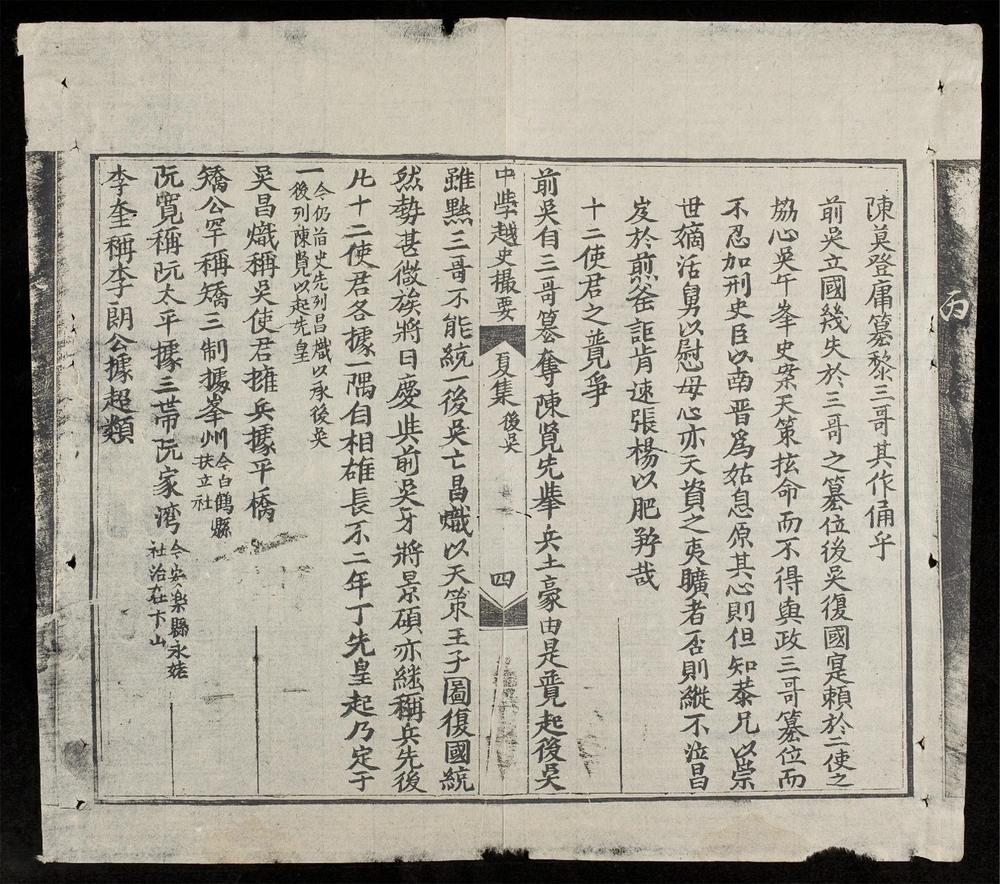 丙
陳莫登庸篡黎三哥其作俑乎
前吳立國幾失於三哥之篡位後吳復國寔頼於二使之
協心吳午峯史案天策拡命而不得與政三哥篡位而
不忍加刑史臣以南晋爲姑息原其心則但知恭兄以崇
世嫡活舅以慰母心亦天資之夷曠者否則縱不泣昌
岌於煎釜詎肯速張楊以肥羜哉
十二使君之競爭
前吳自三哥篡奪陳覧先举兵土豪由是競起後吳
中學越史撮要
夏集
後吳
四
雖黜三哥不能統一後吳亡昌熾以天策王子圖復國統
然勢甚微矣將日慶共前吳牙將景碩亦継稱兵先後
凢十二使君各據一隅自相雄長不二年丁先皇起乃定于
一
今仍旧史先列昌熾以承後吳
後列陳覧以起先皇
吳昌熾稱吳使君擁兵據平橋
矯公罕稱矯三制據峯州
今白鶴縣
扶立社
阮寛稱阮太平據三帶阮家湾
今安樂縣永姥
社治在卞山
李奎稱李朗公據超類